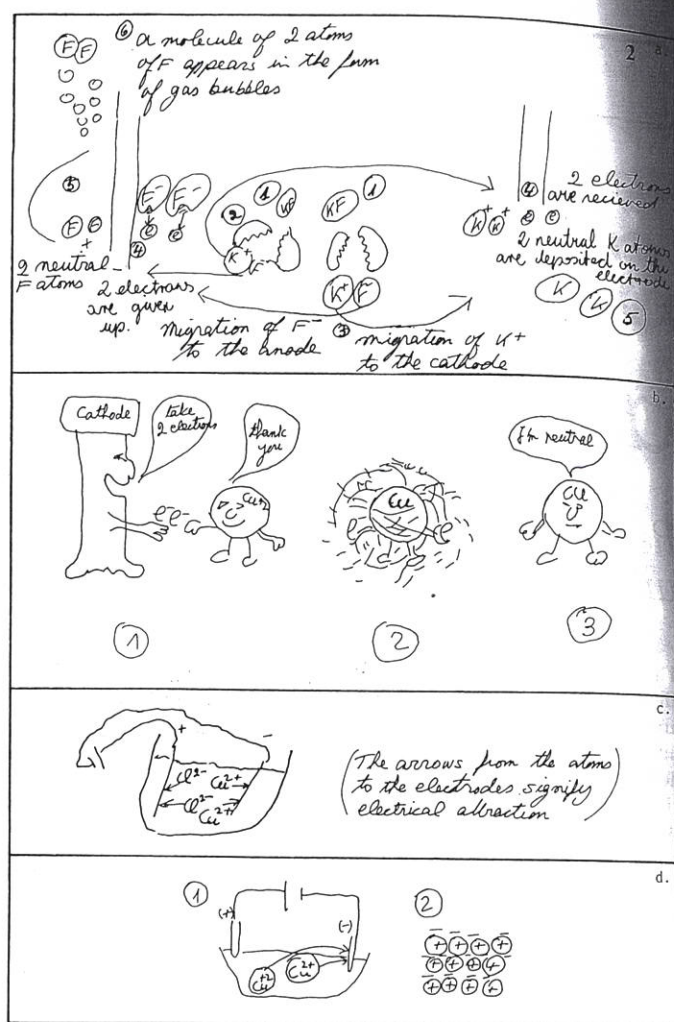 2 a.
⑥ a molecule of 2 atoms
of F appears in the form
of gas bubbles
F F
⑤
F F
+
2 neutral
F atoms
F⁻ F⁻
e e
④
2 electrons
are given
up.
② ① KF KF ①
K⁺
K⁺ F⁻
migration of F⁻
to the anode
③
migration of K⁺
to the cathode
K⁺ K⁺
④ 2 electrons
are recieved
e e
2 neutral K atoms
are deposited on the
electrode
K K 5
b.
Cathode
take
2 electrons
thank
you
I'm neutral
e⁻ e⁻
Cu+2
Cu
Cu
① ② ③
c.
+ −
Cl²⁻ Cu²⁺
Cl²⁻ Cu²⁺
(The arrows from the atoms
to the electrodes signify
electrical attraction)
d.
① ②
(+) (−)
Cu+2 Cu²⁺
− − − −
+ + + +
− − − −
+ + + +
− − − −
+ + + +